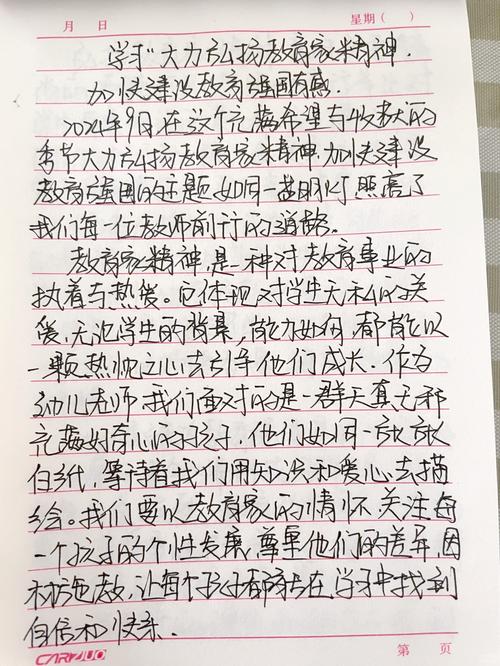 月 日 星期（ ）
学习"大力弘扬教育家精神.
加快建设教育强国有感.
2024年9月在这个充满希望与收获的
季节大力弘扬教育家精神.加快建设
教育强国的主题如同一盏明灯照亮了
我们每一位教师前行的道路.
教育家精神,是一种对教育事业的
执着与热爱。它体现对学生无私的关
爱,无论学生的背景,能力如何,都能以
一颗热忱之心去引导他们成长.作为
幼儿老师我们面对的是一群天真无邪
充满好奇心的孩子,他们如同一张张
白纸,等待着我们用知识和爱心去描
绘。我们要以教育家的情怀关注每
一个孩子的个性发展,尊重他们的差异,因
材施教,让每个孩子都能在学习中找到
自信和快乐.
CARYDUO 第 页